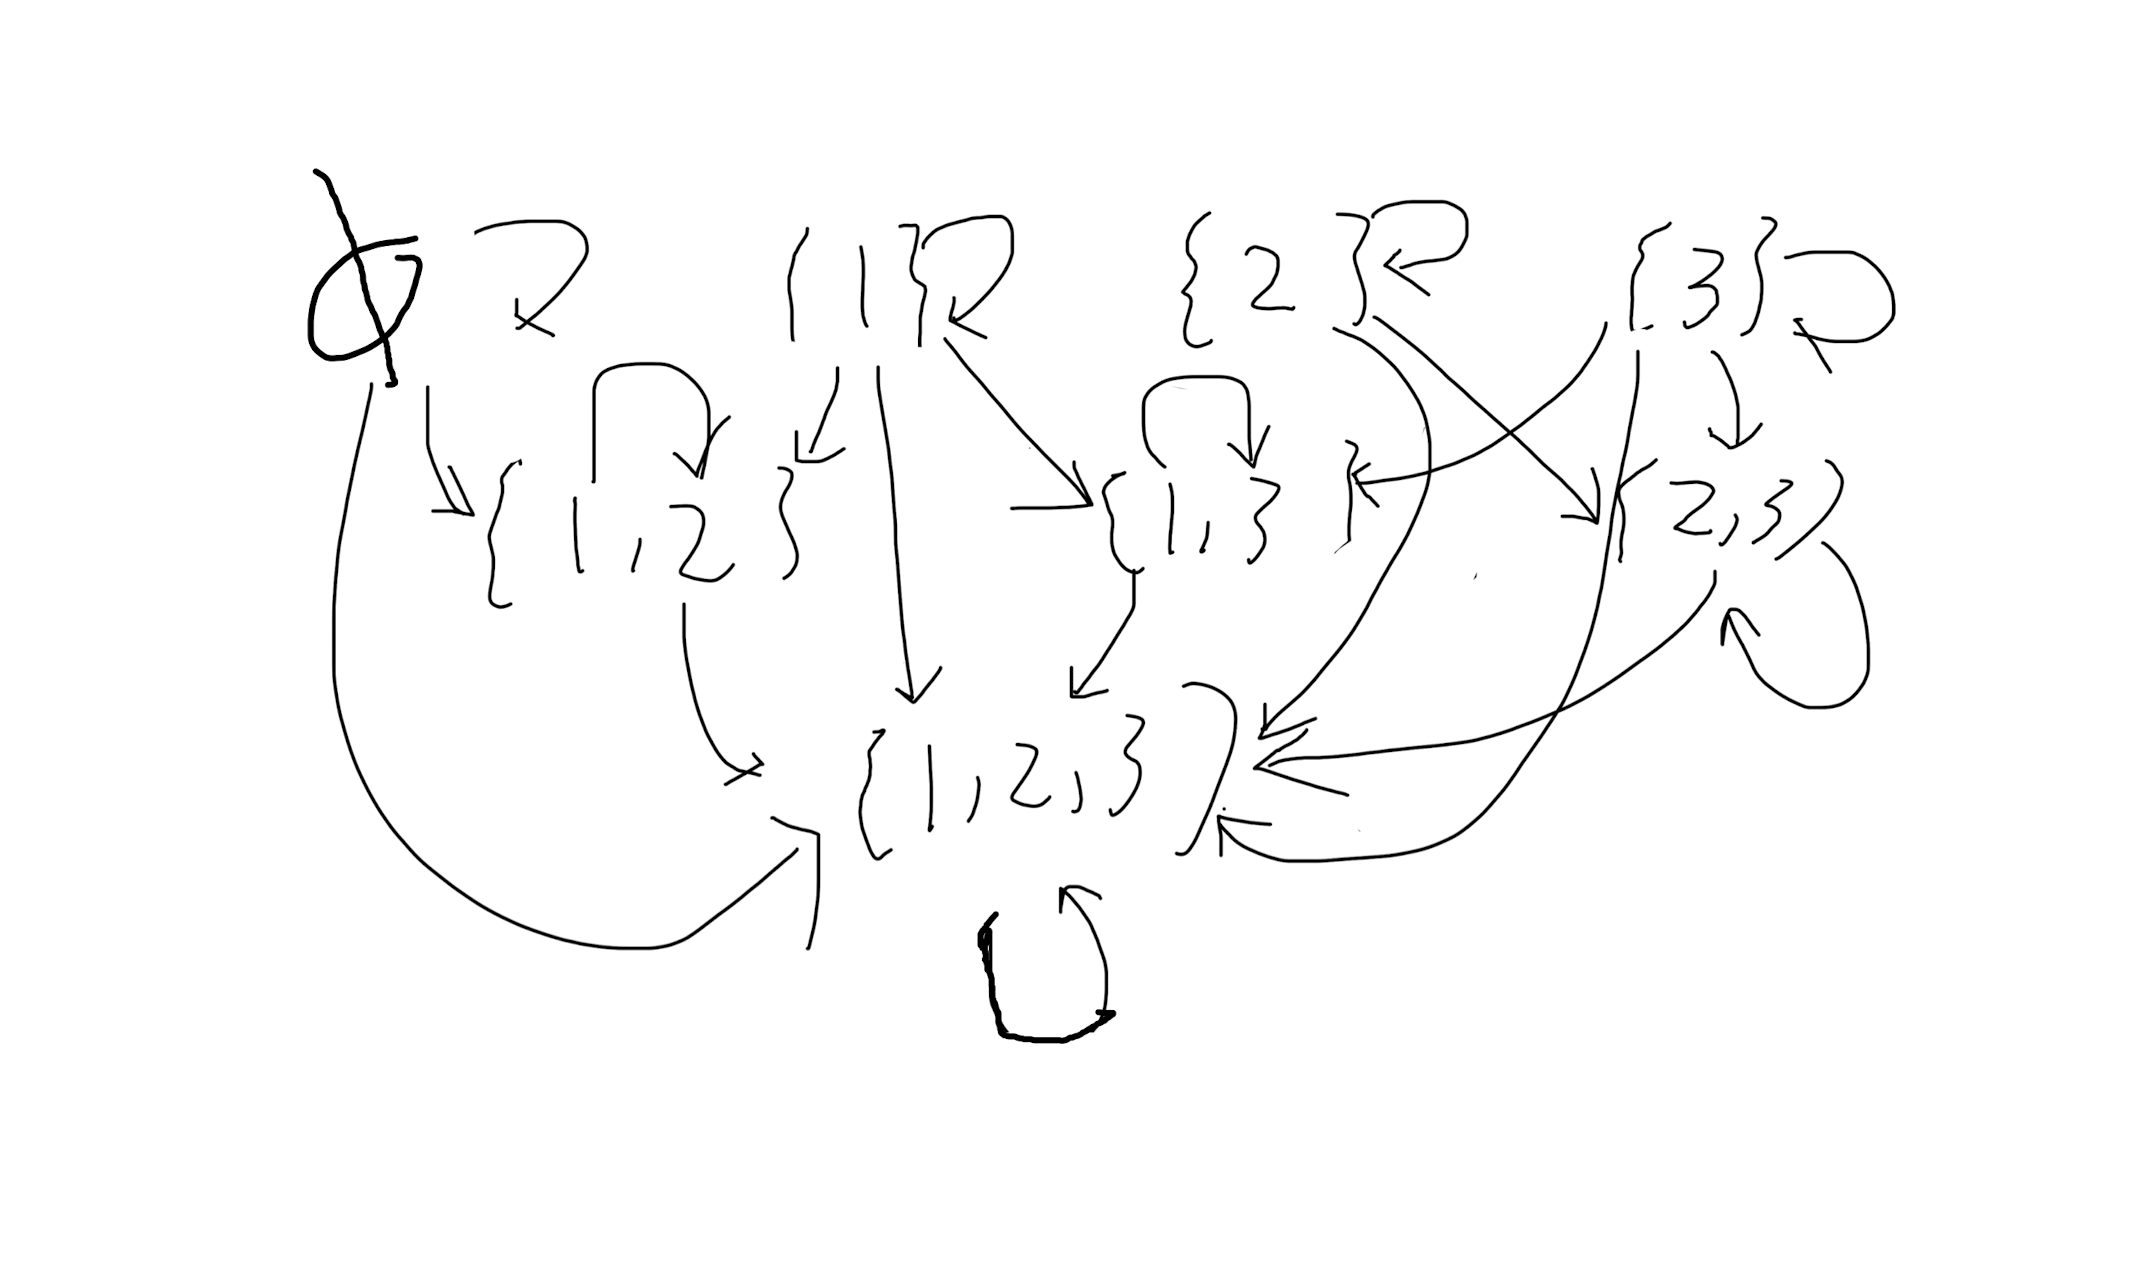 ∅ {1} {2} {3}
{1,2} {1,3} {2,3}
{1,2,3}